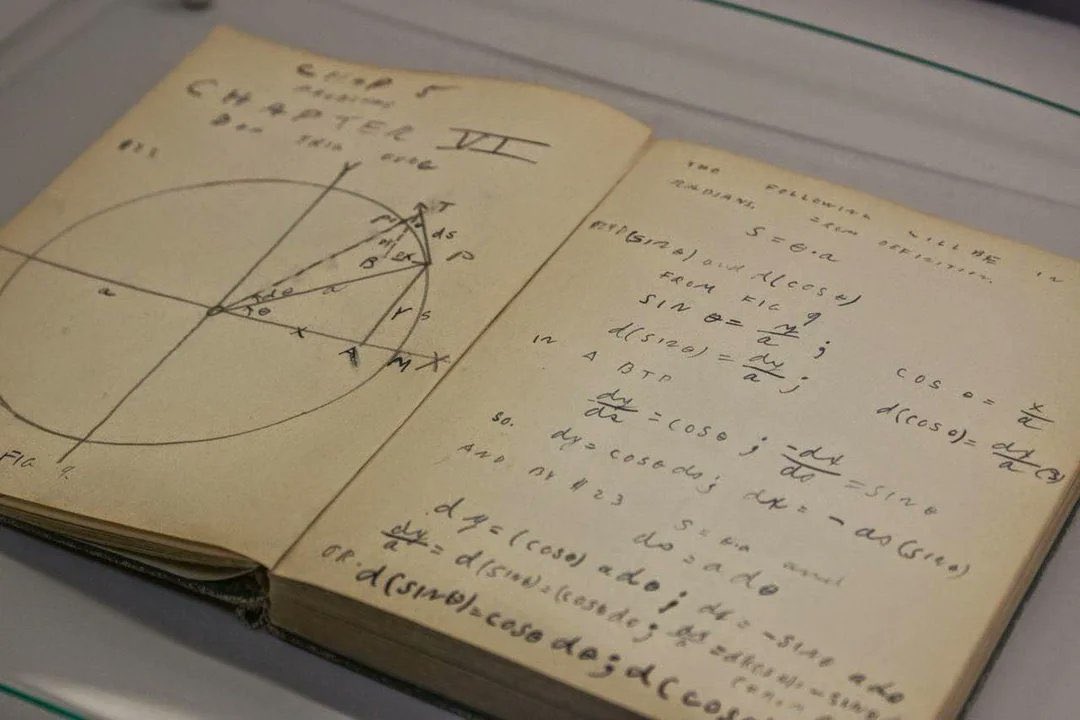 CHAP 5
CHAPTER VI
Y
T
ds
P
B
a
dθ
θ
a
x
y
s
A
M
X
FIG 9.
THE FOLLOWING WILL BE IN
RADIANS. FROM DEFINITION.
S = θ·a
d(sin θ) and d(cos θ)
FROM FIG 9
SIN θ = y/a ; cos θ = x/a
d(sin θ) = dy/a ; d(cos θ) = dx/a (3)
IN A BTP
dy/ds = cos θ ; -dx/ds = sin θ
so. dy = cos θ ds ; dx = - ds (sin θ)
AND BY #23 S = θ·a and
ds = a dθ
dy = (cos θ) a dθ ; dx = - sin θ a dθ
dy/a = d(sin θ) = (cos θ dθ ; dx/a = d(cos θ) = - sin θ
OR. d(sin θ) = cos θ dθ ; d(cos